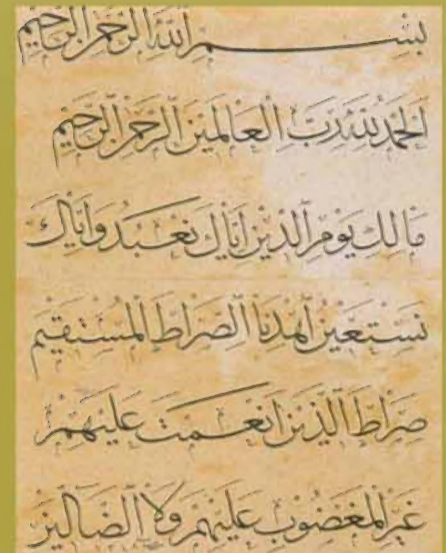 بِسْمِ اللَّهِ الرَّحْمَنِ الرَّحِيمِ
اَلْحَمْدُ لِلَّهِ رَبِّ الْعَالَمِينَ الرَّحْمَنِ الرَّحِيمِ
مَالِكِ يَوْمِ الدِّينِ اِيَّاكَ نَعْبُدُ وَاِيَّاكَ
نَسْتَعِينُ اِهْدِنَا الصِّرَاطَ الْمُسْتَقِيمَ
صِرَاطَ الَّذِينَ اَنْعَمْتَ عَلَيْهِمْ
غَيْرِ الْمَغْضُوبِ عَلَيْهِمْ وَلَا الضَّالِّينَ